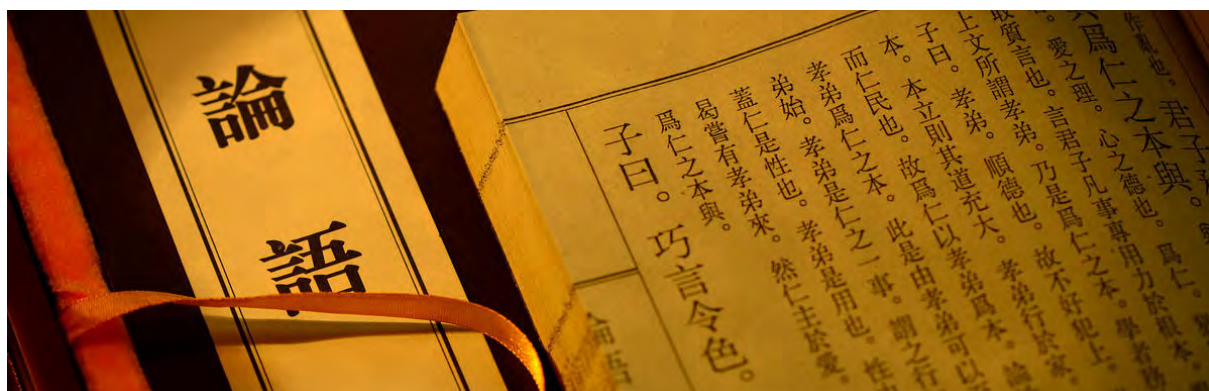 論語
作亂也。君子
爲仁之本與。
愛之理。心之德也。爲仁。
質言也。言君子凡事專用力於根本。
上文所謂孝弟。乃是爲仁之本。學者
子曰。孝弟。順德也。故不好犯上。
本。本立則其道充大。孝弟行於家。
而仁民也。故爲仁以孝弟爲本。論
孝弟爲仁之本。此是由孝弟可以
弟始。孝弟是仁之一事。謂之行
蓋仁是性也。孝弟是用也。性
曷嘗有孝弟來。然仁主於愛。
爲仁之本與。
子曰。巧言令色。
論語